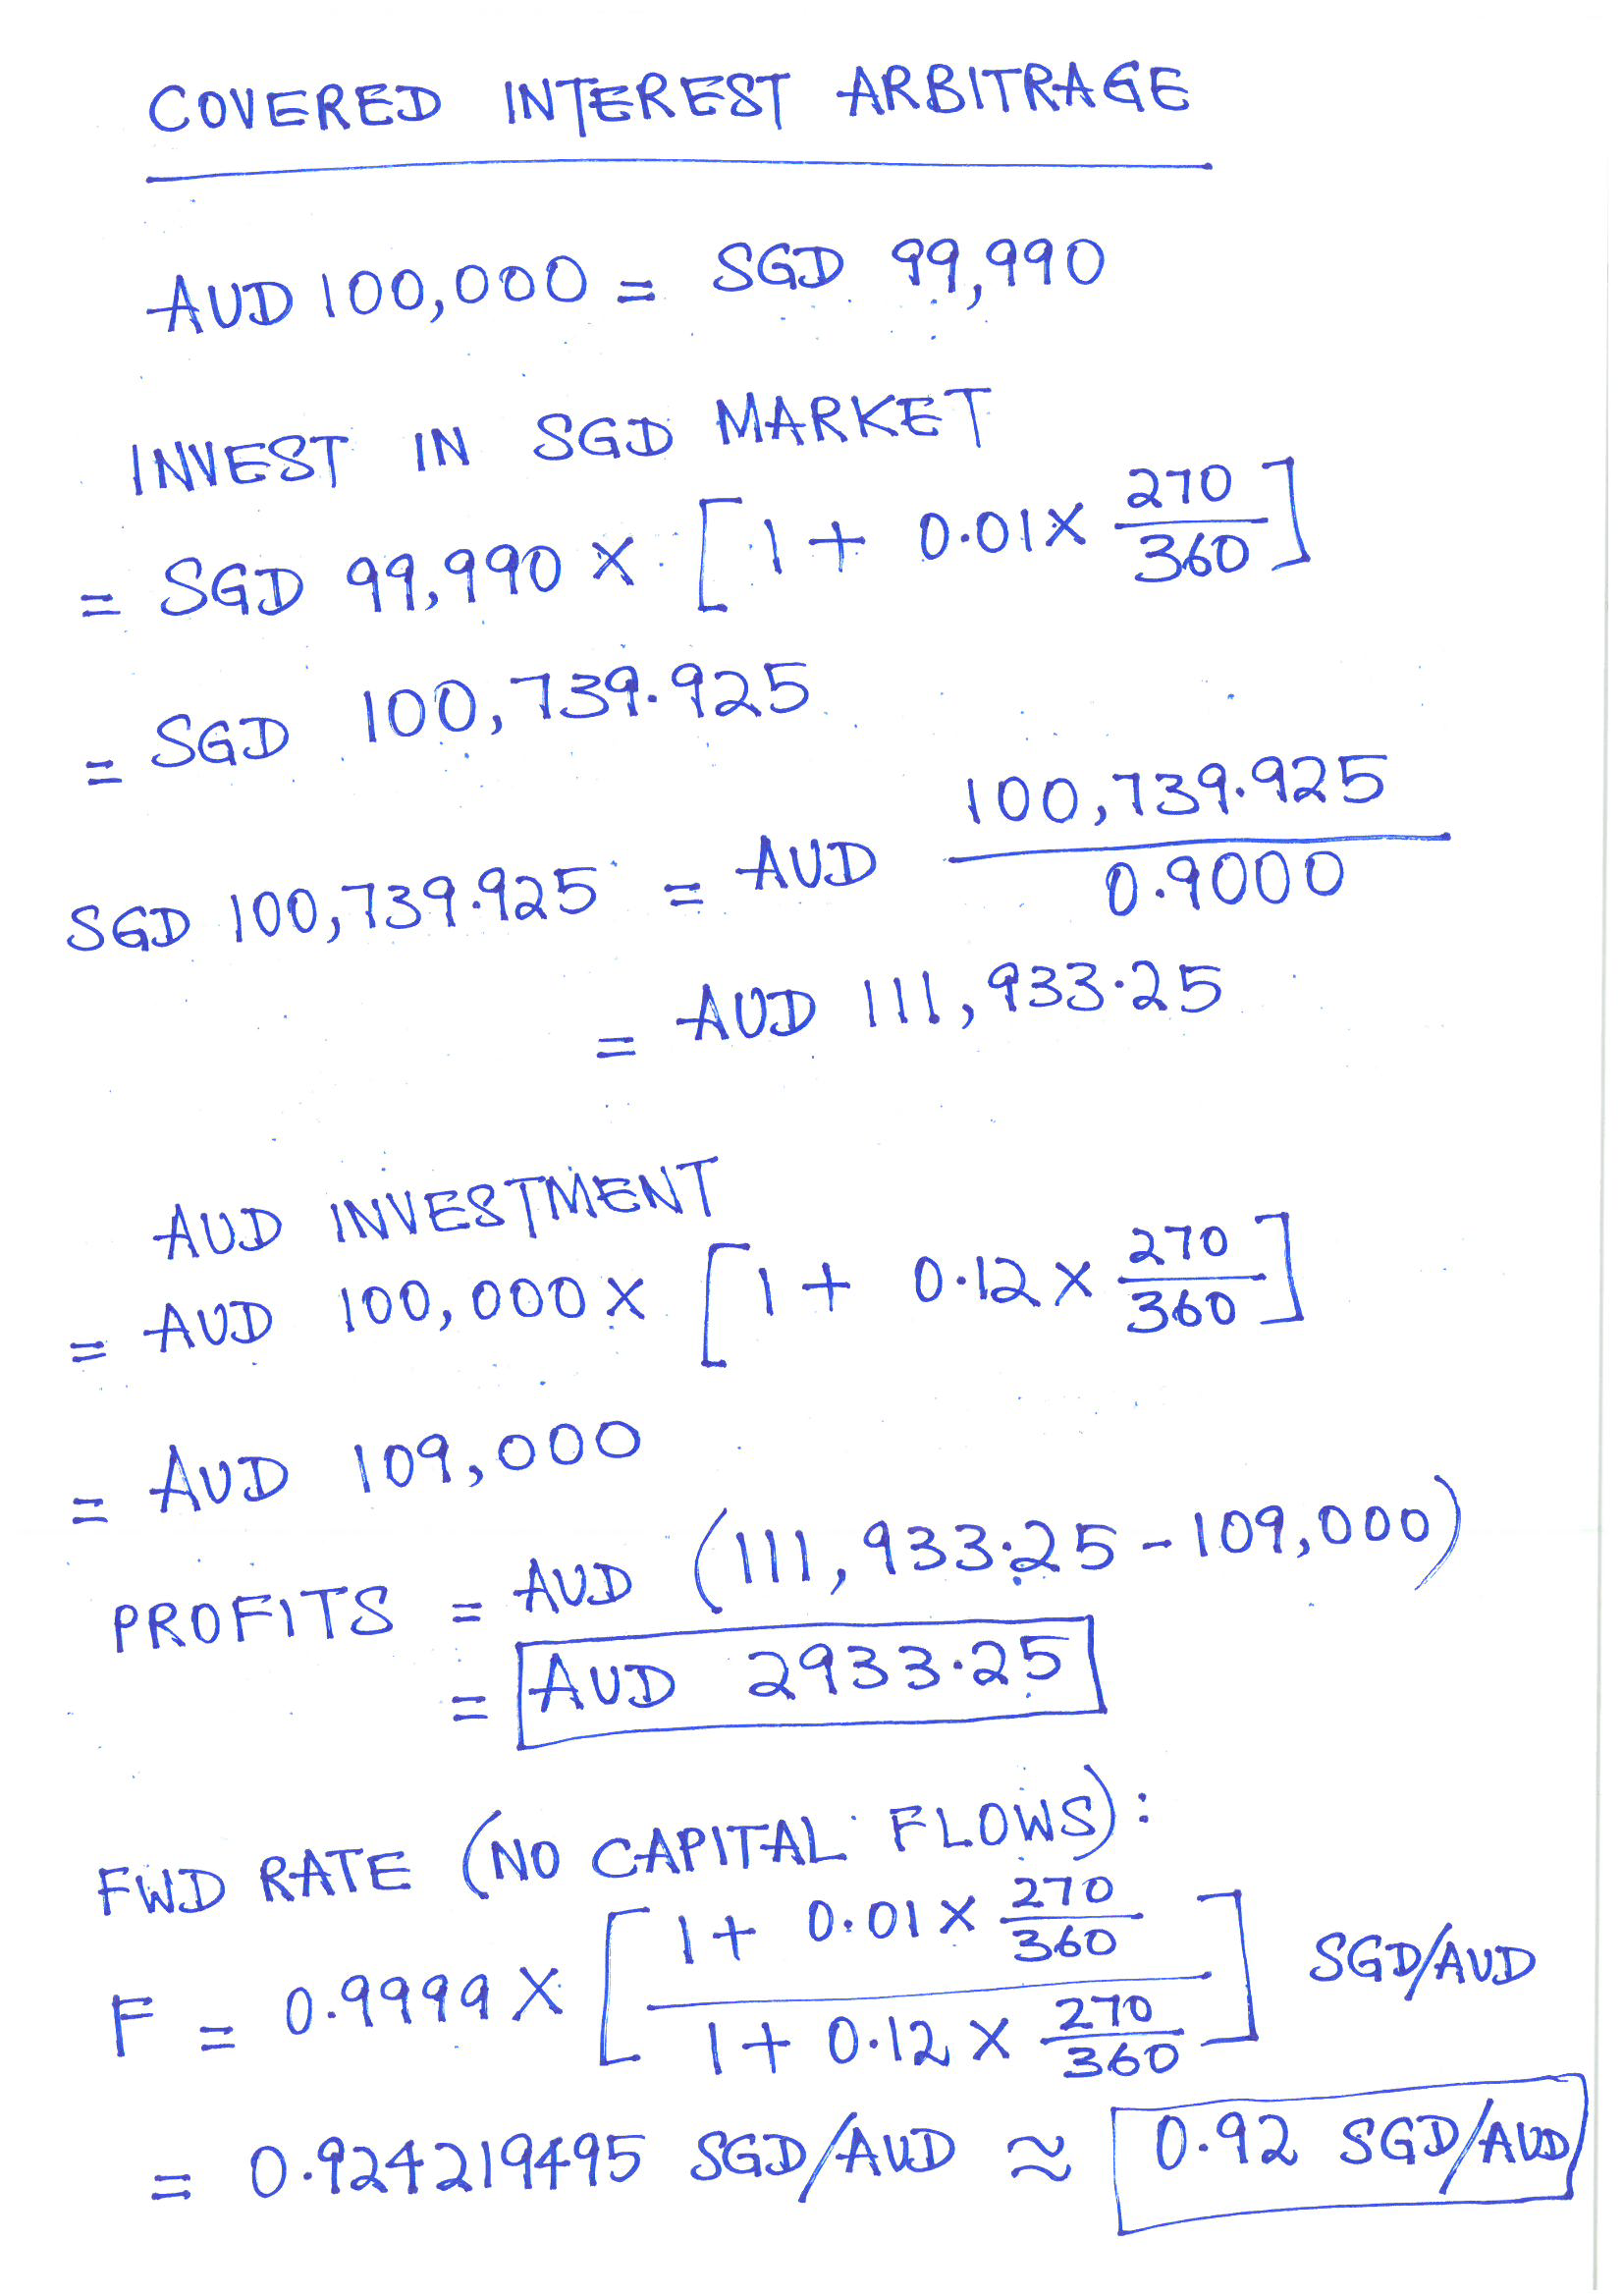 COVERED INTEREST ARBITRAGE
AUD 100,000 = SGD 99,990
INVEST IN SGD MARKET
= SGD 99,990 × [1 + 0.01 × 270/360]
= SGD 100,739.925
SGD 100,739.925 = AUD 100,739.925/0.9000
= AUD 111,933.25
AUD INVESTMENT
= AUD 100,000 × [1 + 0.12 × 270/360]
= AUD 109,000
PROFITS = AUD (111,933.25 - 109,000)
= AUD 2933.25
FWD RATE (NO CAPITAL FLOWS):
F = 0.9999 × [(1 + 0.01 × 270/360)/(1 + 0.12 × 270/360)] SGD/AUD
= 0.924219495 SGD/AUD ≈ 0.92 SGD/AUD